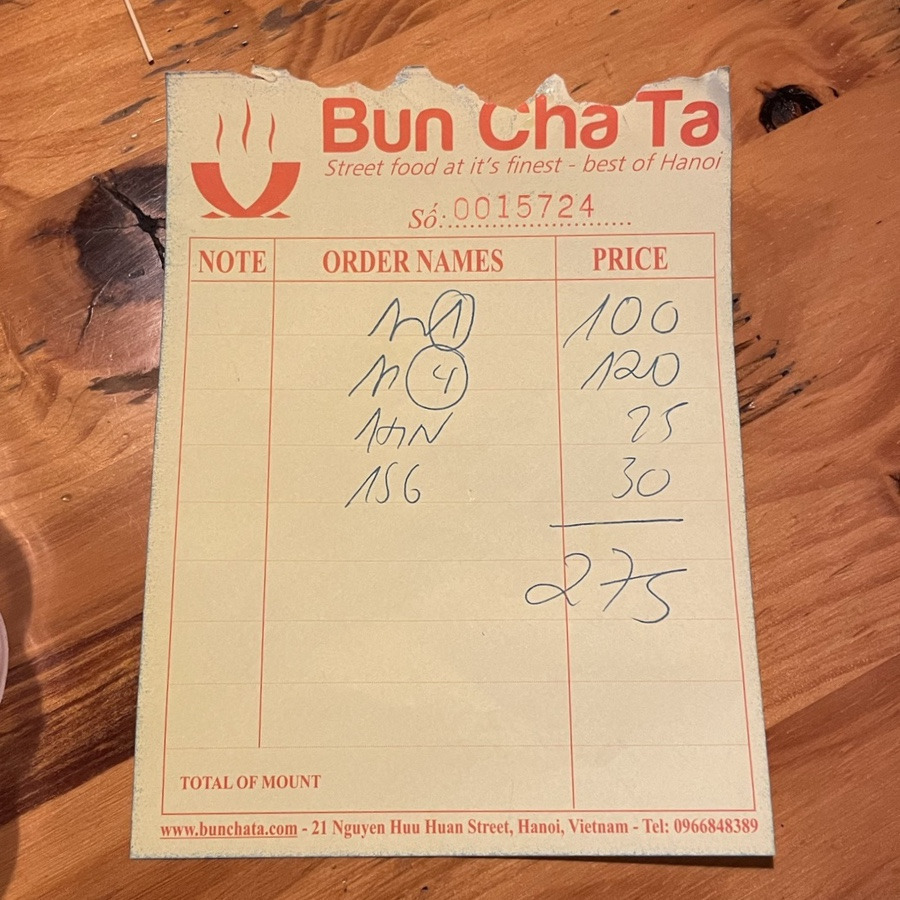 Bun Cha Ta
Street food at it's finest - best of Hanoi
Số: 0015724
NOTE ORDER NAMES PRICE
1 100
4 120
1HN 25
1SG 30
275
TOTAL OF MOUNT
www.bunchata.com - 21 Nguyen Huu Huan Street, Hanoi, Vietnam - Tel: 0966848389